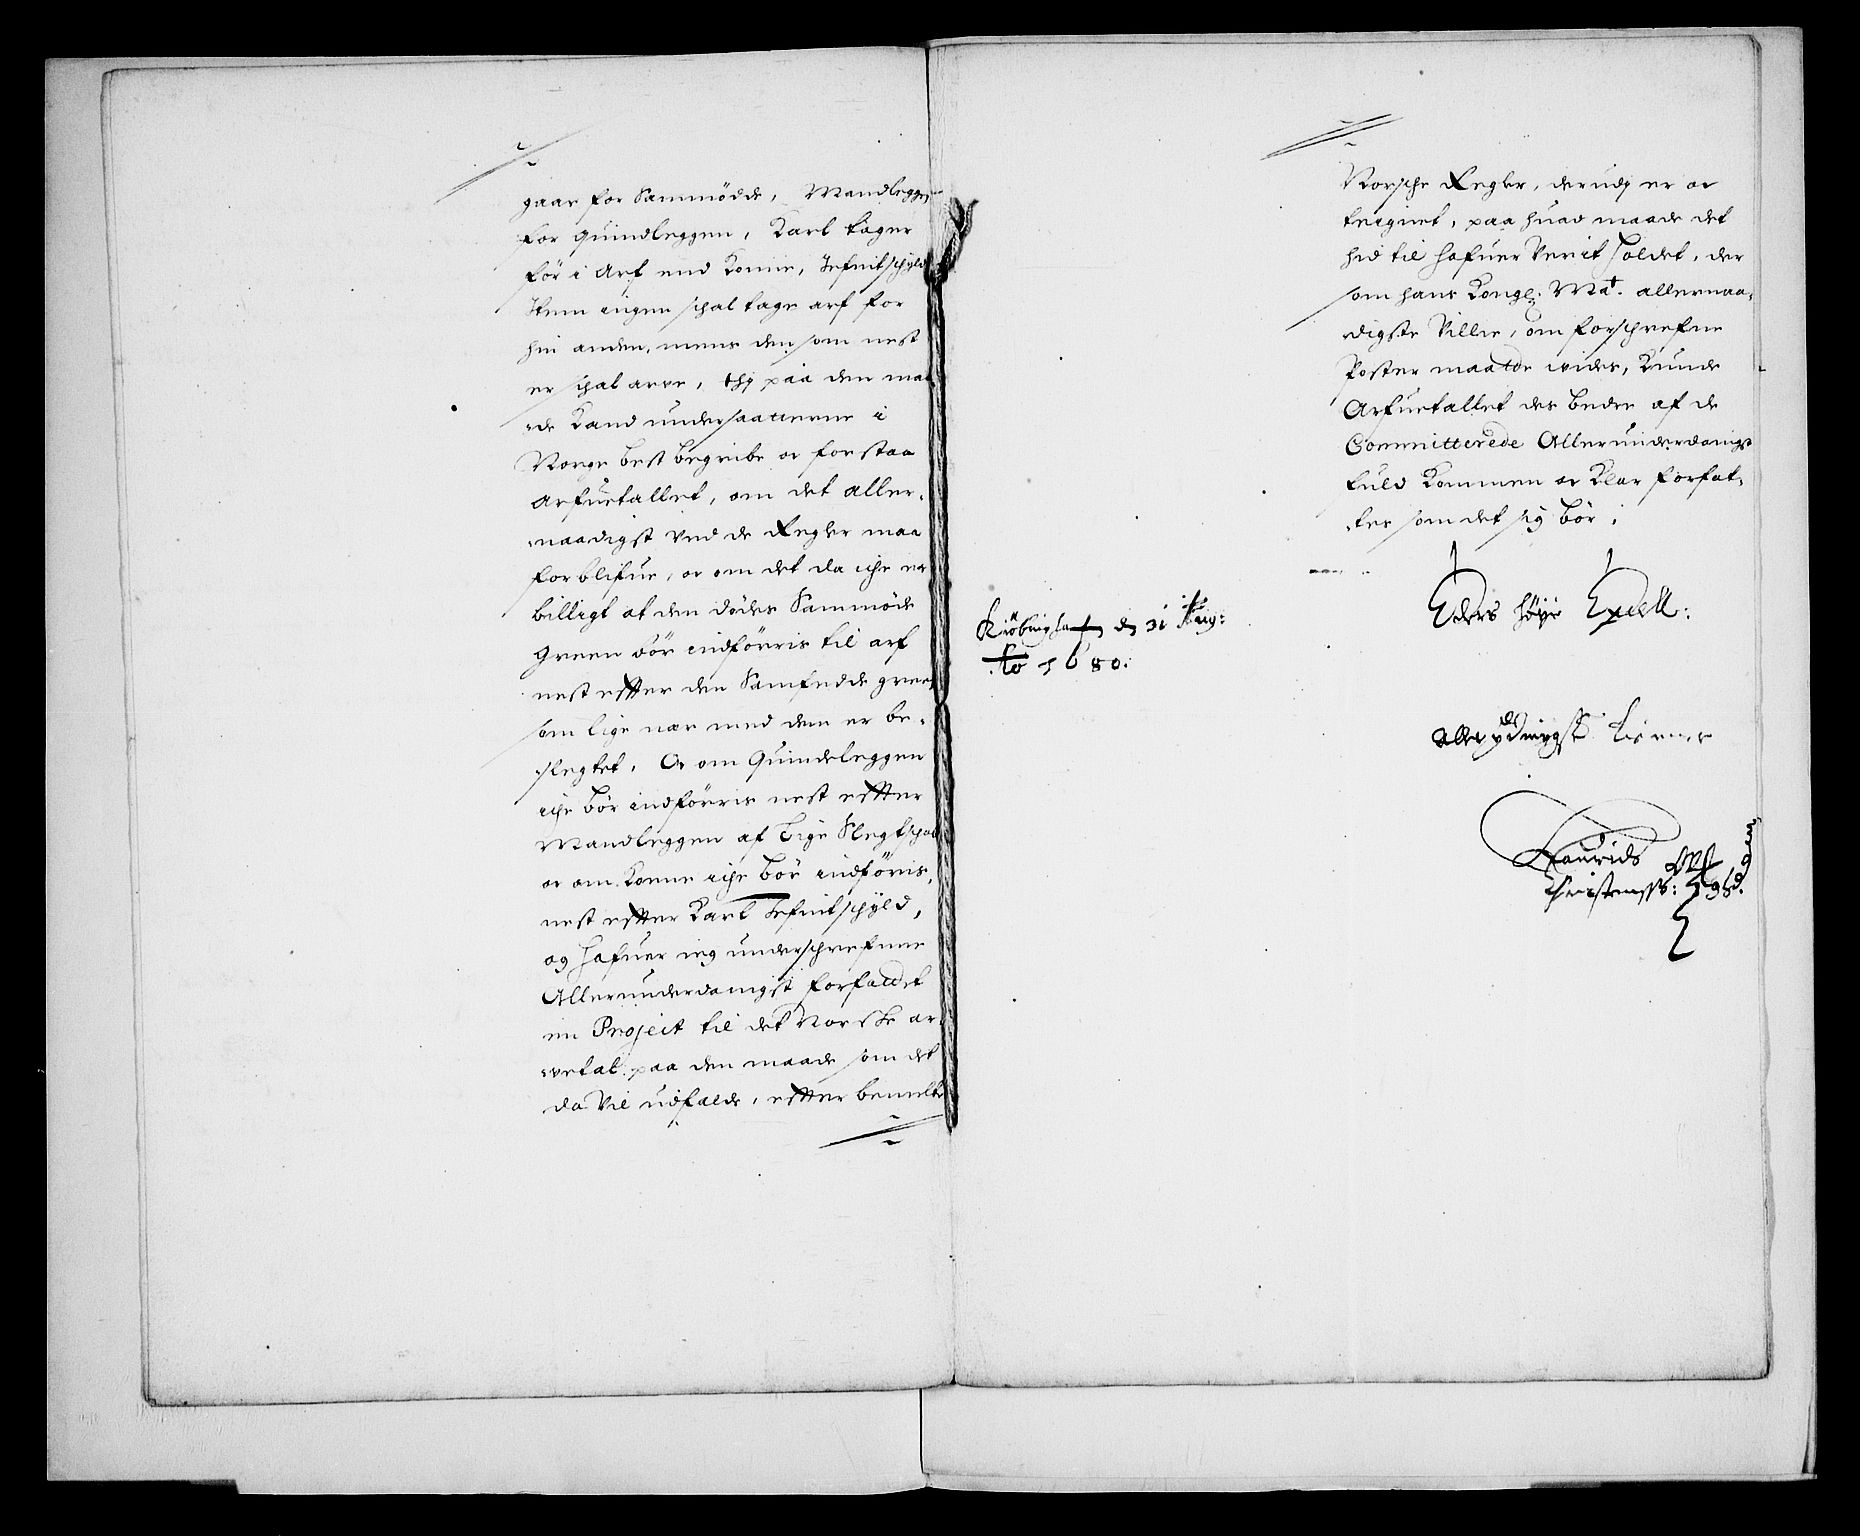 gaar for Sammödde, Mandlegge
for Quindleggen, Karl tager
för i Arf end Konne, Jefnitschyld
Item ingen schal tage arf for
hin anden, mens den som nest
er schal arve, thj paa den maa
-de Kand undersaatterne i
Norge best begribe oc forstaa
Arfuetallet, om det aller-
-naadigst ved de Regler maa
forblifue, oc om det da iche er
billigt at den dödes Sammöde
Green bör indförris til arf
nest effter den Samfedde green
som lige nær med dem er be-
slegtet, Oc om Quindeleggen
iche bör indförris nest effter
Mandleggen af lige Slegtschab
oc om Konne iche bör indföris,
nest effter Karl Jefnitschyld,
og hafuer ieg underschrefune
Allerunderdanigst forfattet
en Project til det Norske ar-
-vetal paa den maade som det
da vil udfalde, effter bemelte
Norsche Regler, derudj er oc
teignet, paa huad maade det
hid til hafuer verit holdet, der
som hans Kongl. Mat. allernaa-
-digste Villie, om forschrefne
Poster maatte vides, Kunde
Arfuetallet des bedre af de
Committerede Allerunderdanigst
fuld Kommen oc Klar forfat-
-tes som det sig bör.
Kiöbinghafn d 31 Aug:
Ao 1680.
Eders höye Excell:
aller ydmygst tienner
Laurids
Christenss: